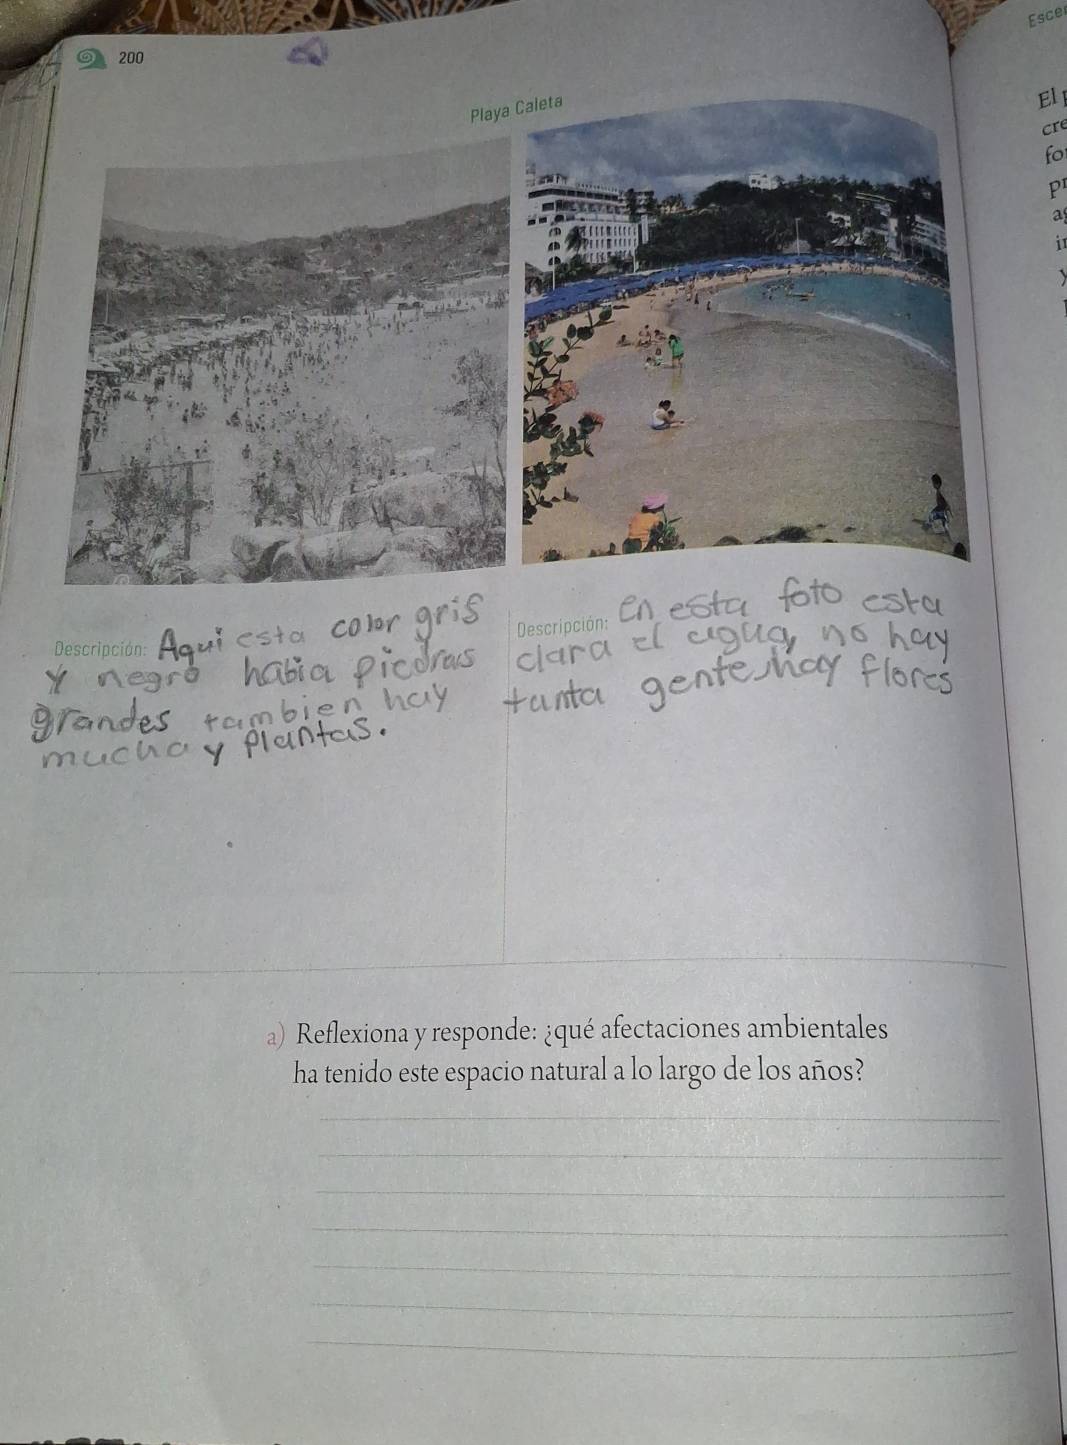 200
Playa Caleta
Descripción: Aqui esta color gris
y negro habia piedras
grandes tambien hay
mucha y plantas.
Descripción: en esta foto esta
clara el agua, no hay
tanta gente, hay flores
a) Reflexiona y responde: ¿qué afectaciones ambientales
ha tenido este espacio natural a lo largo de los años?
Esce
El
cre
fo
pr